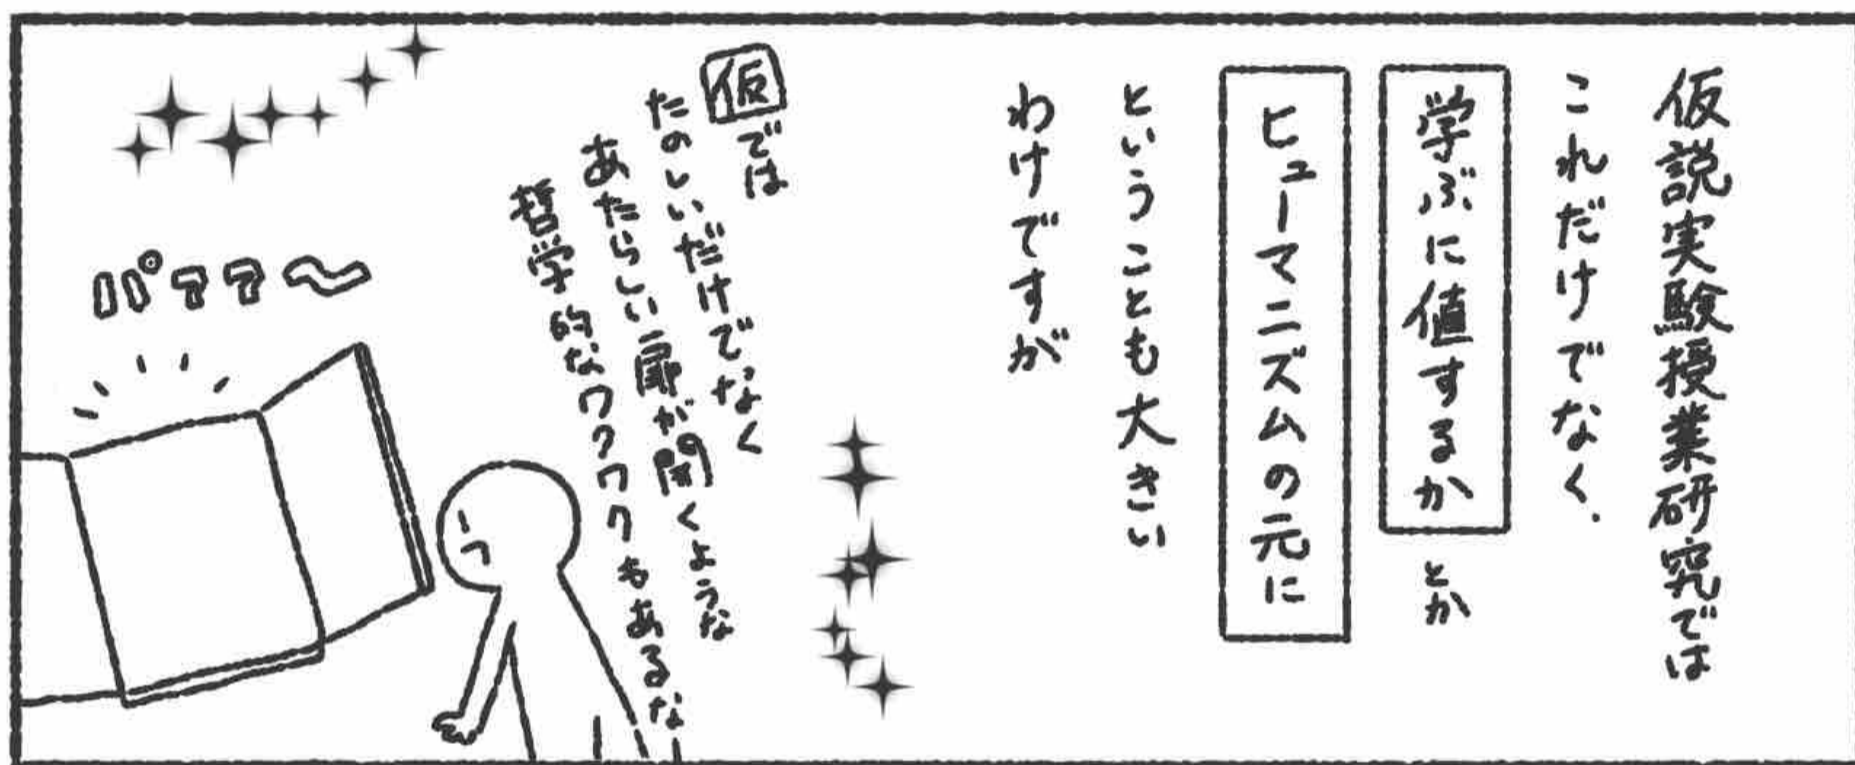 仮説実験授業研究では
これだけでなく、
学ぶに値するかとか
ヒューマニズムの元に
ということも大きい
わけですが
仮では
たのしいだけでなく
あたらしい扉が開くような
哲学的なワクワクもあるなー
パァァ〜